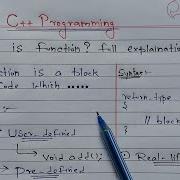 C++ Programming
is function? full explaination
ction is a block
Code which .....
Syntax-
return-type
{
// block
}
User-defined
void add();
Pre-defined
Real-lif